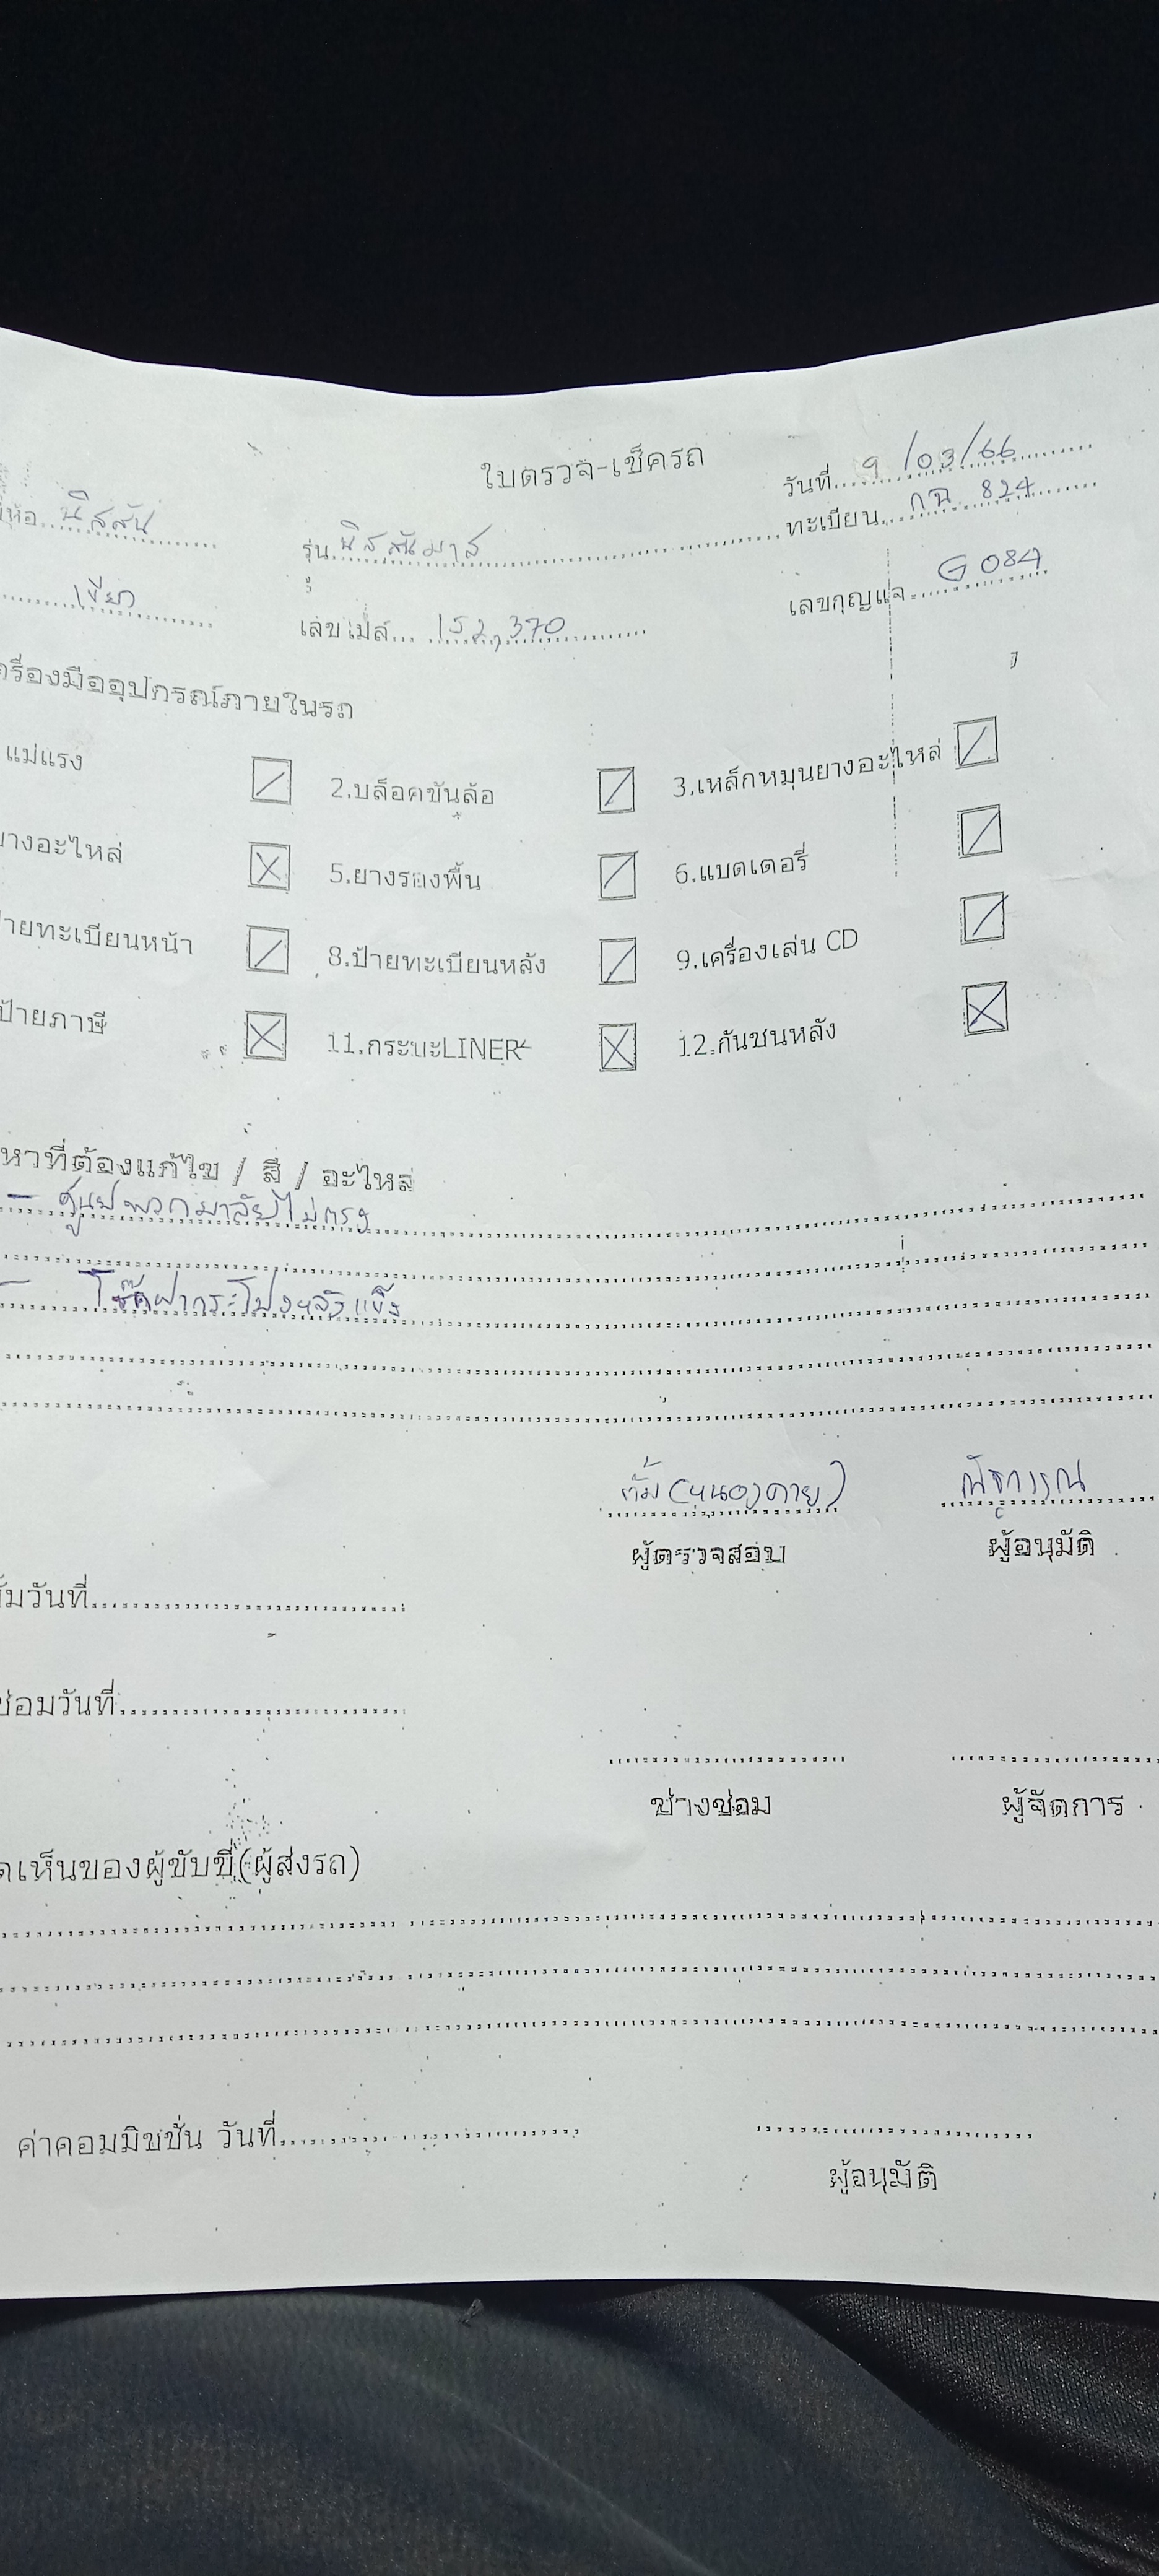 ใบตรวจ-เช็ครถ
วันที่ 9/03/66
ยี่ห้อ นิสสัน รุ่น นิสสันมาส ทะเบียน กฉ 824
เขียว เลขไมล์ 152,370 เลขกุญแจ G 084
ครื่องมืออุปกรณ์ภายในรถ
แม่แรง 2.บล็อคขันล้อ 3.เหล็กหมุนยางอะไหล่
ยางอะไหล่ 5.ยางรองพื้น 6.แบตเตอรี่
ป้ายทะเบียนหน้า 8.ป้ายทะเบียนหลัง 9.เครื่องเล่น CD
ป้ายภาษี 11.กระบะLINER 12.กันชนหลัง
หาที่ต้องแก้ไข / สี / อะไหล่
- ศูนย์พวกมาลัยไม่ตรง
- โช๊คฝากระโปงหลังแข็ง
(หนองคาย)
ผู้ตรวจสอบ ผู้อนุมัติ
วันที่
ซ่อมวันที่
ช่างซ่อม ผู้จัดการ
ดเห็นของผู้ขับขี่(ผู้ส่งรถ)
ค่าคอมมิชชั่น วันที่
ผู้อนุมัติ